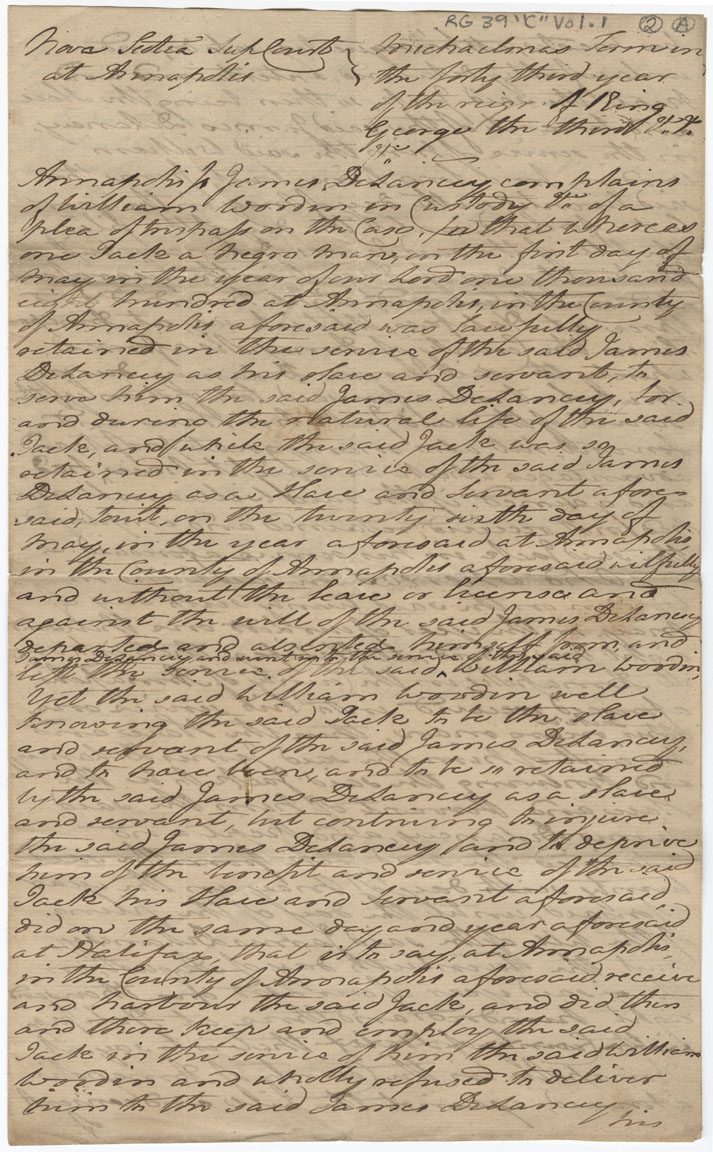 RG 39 "C" Vol. 1 2 A
Nova Scotia Sup Court } Michaelmas Term in
at Annapolis the forty third year
of the reign of King
George the third &c. &c.
&c
Annapolis ss James DeLancey complains
of William Woodin in Custody &c of a
plea of trespass on the Case, for that whereas
one Jack a Negro man, on the first day of
May in the year of our Lord one thousand
eight hundred at Annapolis, in the County
of Annapolis aforesaid was lawfully
retained in the service of the said James
DeLancey as his slave and servant, to
serve him the said James DeLancey, for
and during the natural life of the said
Jack, and while the said Jack was so
retained in the service of the said James
DeLancey as a slave and servant afore-
said, towit, on the twenty sixth day of
May, in the year aforesaid at Annapolis
in the County of Annapolis aforesaid wilfully
and without the leave or license and
against the will of the said James DeLancey
departed and absented himself from and
James DeLancey and went into the service of the said
left the service of the said ^ William Woodin,
Yet the said William Woodin well
knowing the said Jack to be the slave
and servant of the said James DeLancey,
and to have been, and to be so retained
by the said James DeLancey as a slave
and servant, but contriving to injure
the said James DeLancey and to deprive
him of the benefit and service of the said
Jack his slave and servant aforesaid,
did on the same day and year aforesaid
at Halifax, that is to say, at Annapolis,
in the County of Annapolis aforesaid receive
and harbour the said Jack, and did then
and there keep and employ the said
Jack in the service of him the said William
Woodin and wholly refused to deliver
him to the said James DeLancey
his